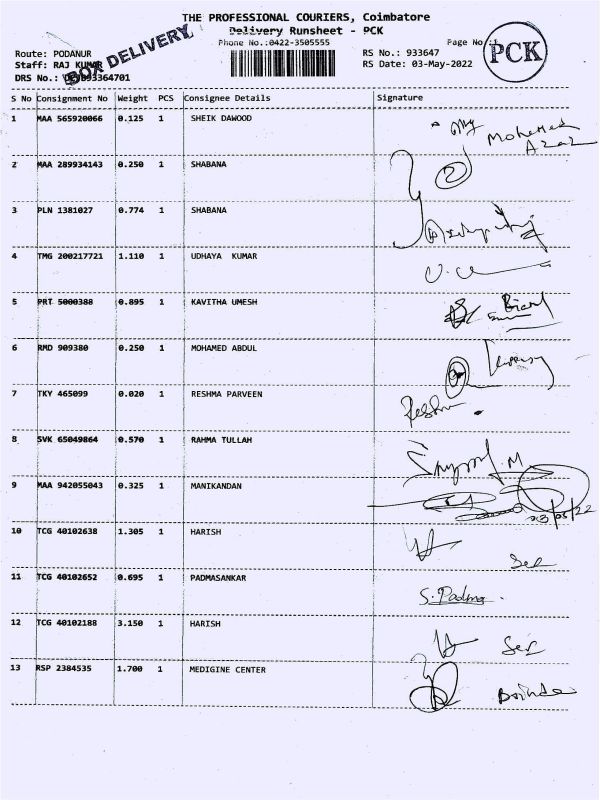 THE PROFESSIONAL COURIERS, Coimbatore
Delivery Runsheet - PCK
Phone No.:0422-3505555
Page No :1
PCK
BOX DELIVERY
Route: PODANUR
Staff: RAJ KUMAR
DRS No.:
RS No.: 933647
RS Date: 03-May-2022
S No Consignment No Weight PCS Consignee Details Signature
1 MAA 565920066 0.125 1 SHEIK DAWOOD
Mohamed
2 MAA 289934143 0.250 1 SHABANA
3 PLN 1381027 0.774 1 SHABANA
4 TMG 200217721 1.110 1 UDHAYA KUMAR
5 PRT 5000388 0.895 1 KAVITHA UMESH
6 RMD 909380 0.250 1 MOHAMED ABDUL
7 TKY 465099 0.020 1 RESHMA PARVEEN
8 SVK 65049864 0.570 1 RAHMA TULLAH
9 MAA 942055043 0.325 1 MANIKANDAN
10 TCG 40102638 1.305 1 HARISH
11 TCG 40102652 0.695 1 PADMASANKAR
S. Padma
12 TCG 40102188 3.150 1 HARISH
13 RSP 2384535 1.700 1 MEDIGINE CENTER